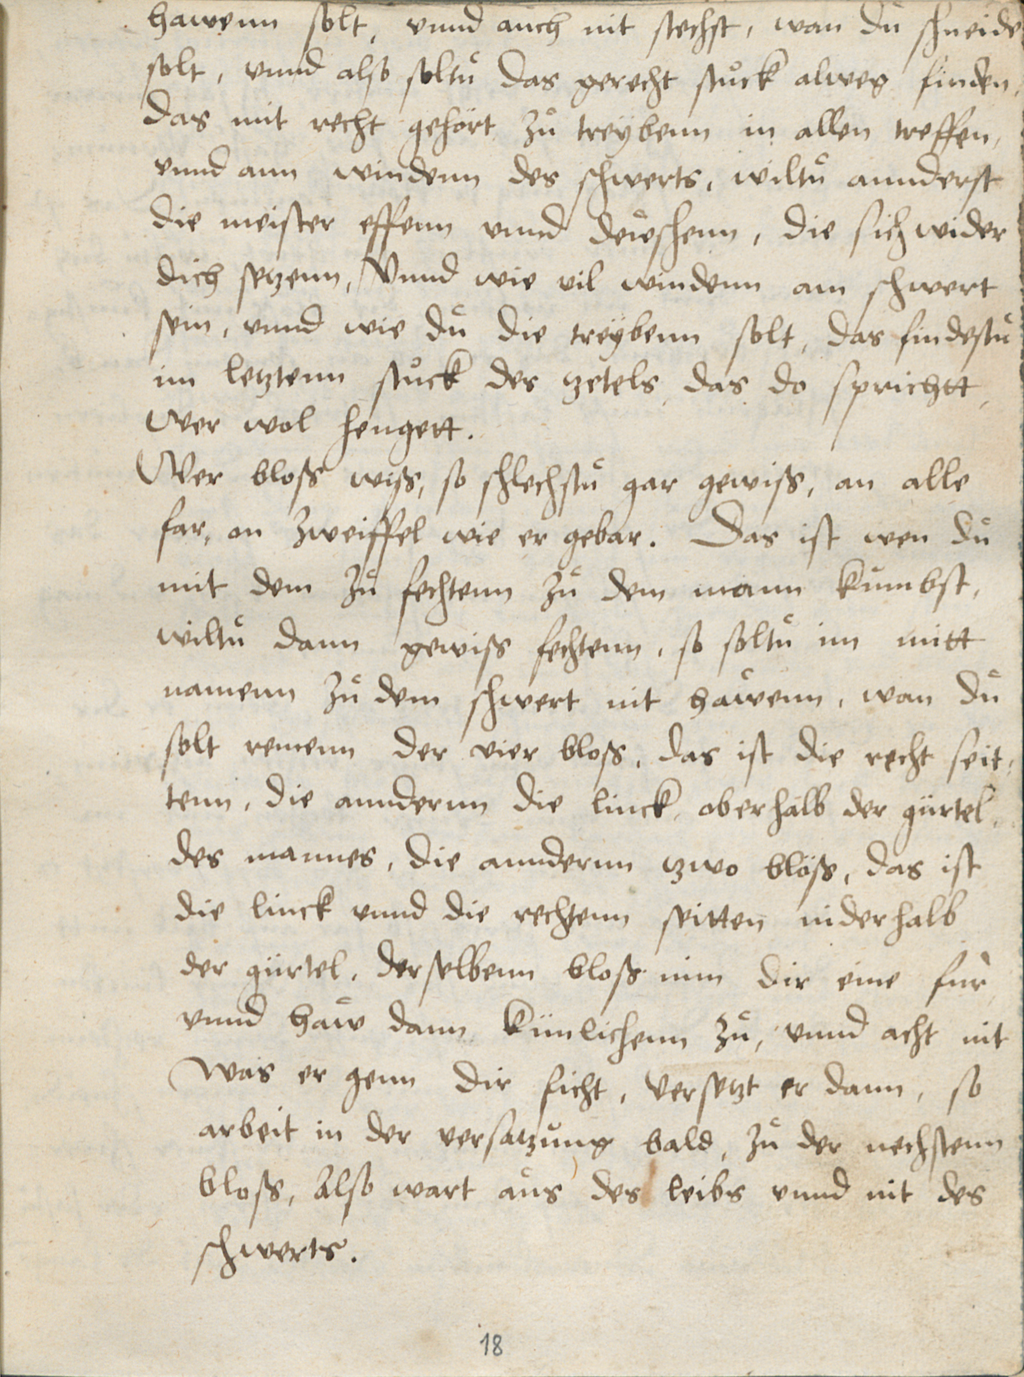 hawenn solt, vnnd auch nit stechst, wan dů schneide
solt, vnnd also soltů das gerecht stůck alweg finden,
das mit recht gehört zů treÿbenn in allen treffen,
vnnd ann windenn des schwerts, wiltů annderst
die meister effenn vnnd deẅschenn, die sich wider
dich setzenn, Vnnd wie vil windenn am schwert
sein, vnnd wie dů die treÿbenn solt, das findestů
im letztenn stůck des zetels, das do sprichtt,
Wer wol hengett.
Wer bloss wiss, so schlechstů gar gewiss, an alle
far, on zweiffel wie er gebar. Das ist wen dů
mit dem zů fechtenn zů dem mann kůmbst,
wiltů dann gewiss fechtenn, so soltů im mitt
namenn zů dem schwert nit haẘenn, wan dů
solt remenn der vier bloss, das ist die recht seit,
tenn, die anndernn die linck, oberhalb der gürtel,
des mannes, die annderun zwo blöss, das ist
die linck vnnd die rechtenn seitten niderhalb
der gürtel, derselbenn bloss nim dir eine für
vnnd haẘ dann künlichenn zů, vnnd acht nit
Was er genn dir ficht, versetzt er dann, so
arbeit in der versatzůng bald, zů der nechstenn
bloss, Also wart aůs des leibs vnnd nit des
schwerts.
18